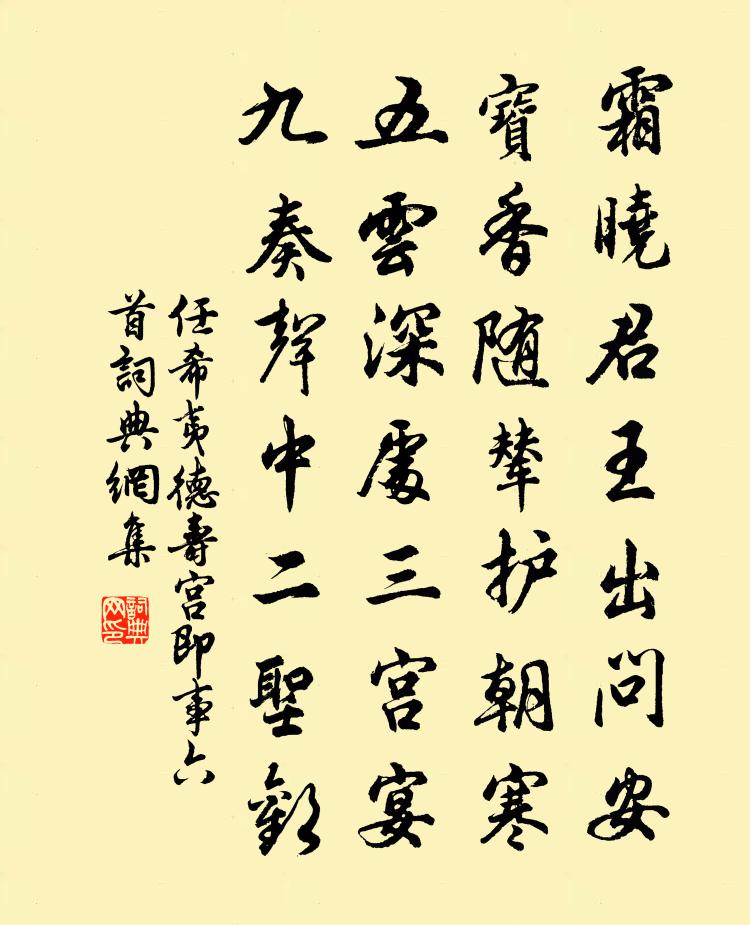 霜曉君王出問安
寶香随輦护朝寒
五雲深處三宫宴
九奏聲中二聖歡
任希夷德壽宫即事六
首詞典網集
詞典
网印